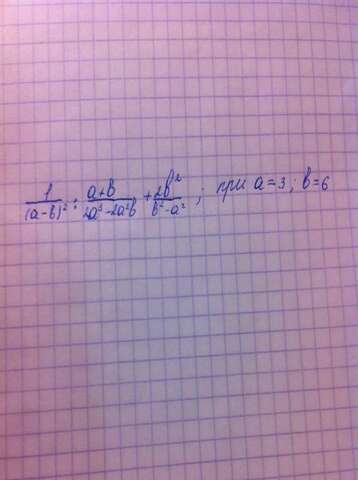 1/(a-b)² : (a+b)/(2a³-2a²b) + 2b²/(b²-a²) ; при a=3; b=6